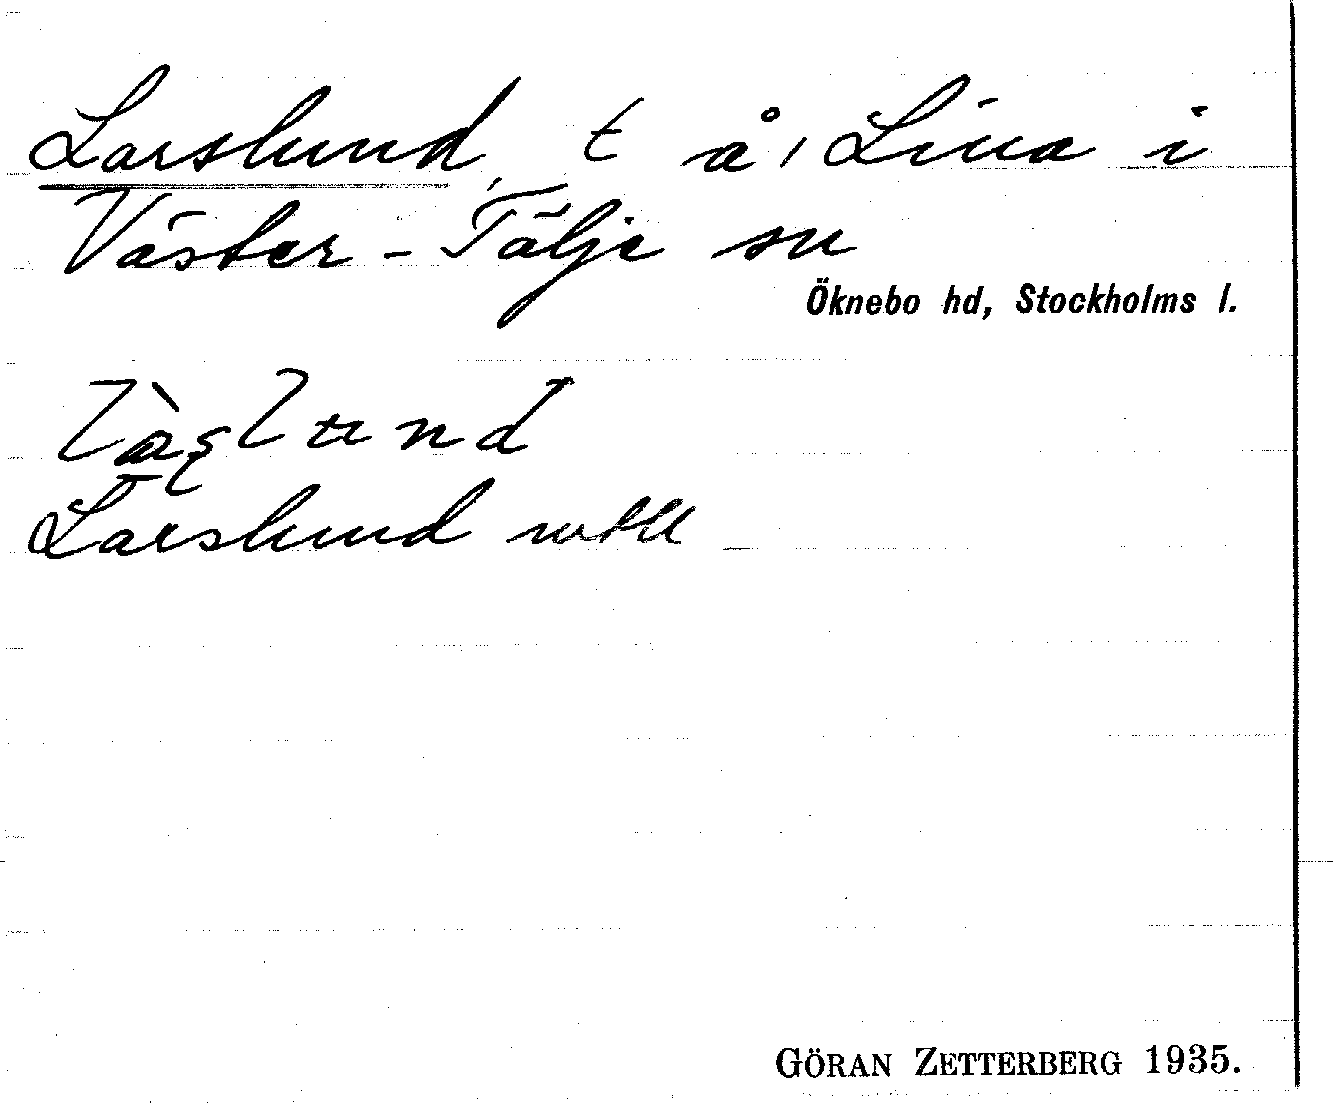 Larslund, t å, Lina i
Väster-Tälje sn
Öknebo hd, Stockholms l.
Larslund
GÖRAN ZETTERBERG 1935.